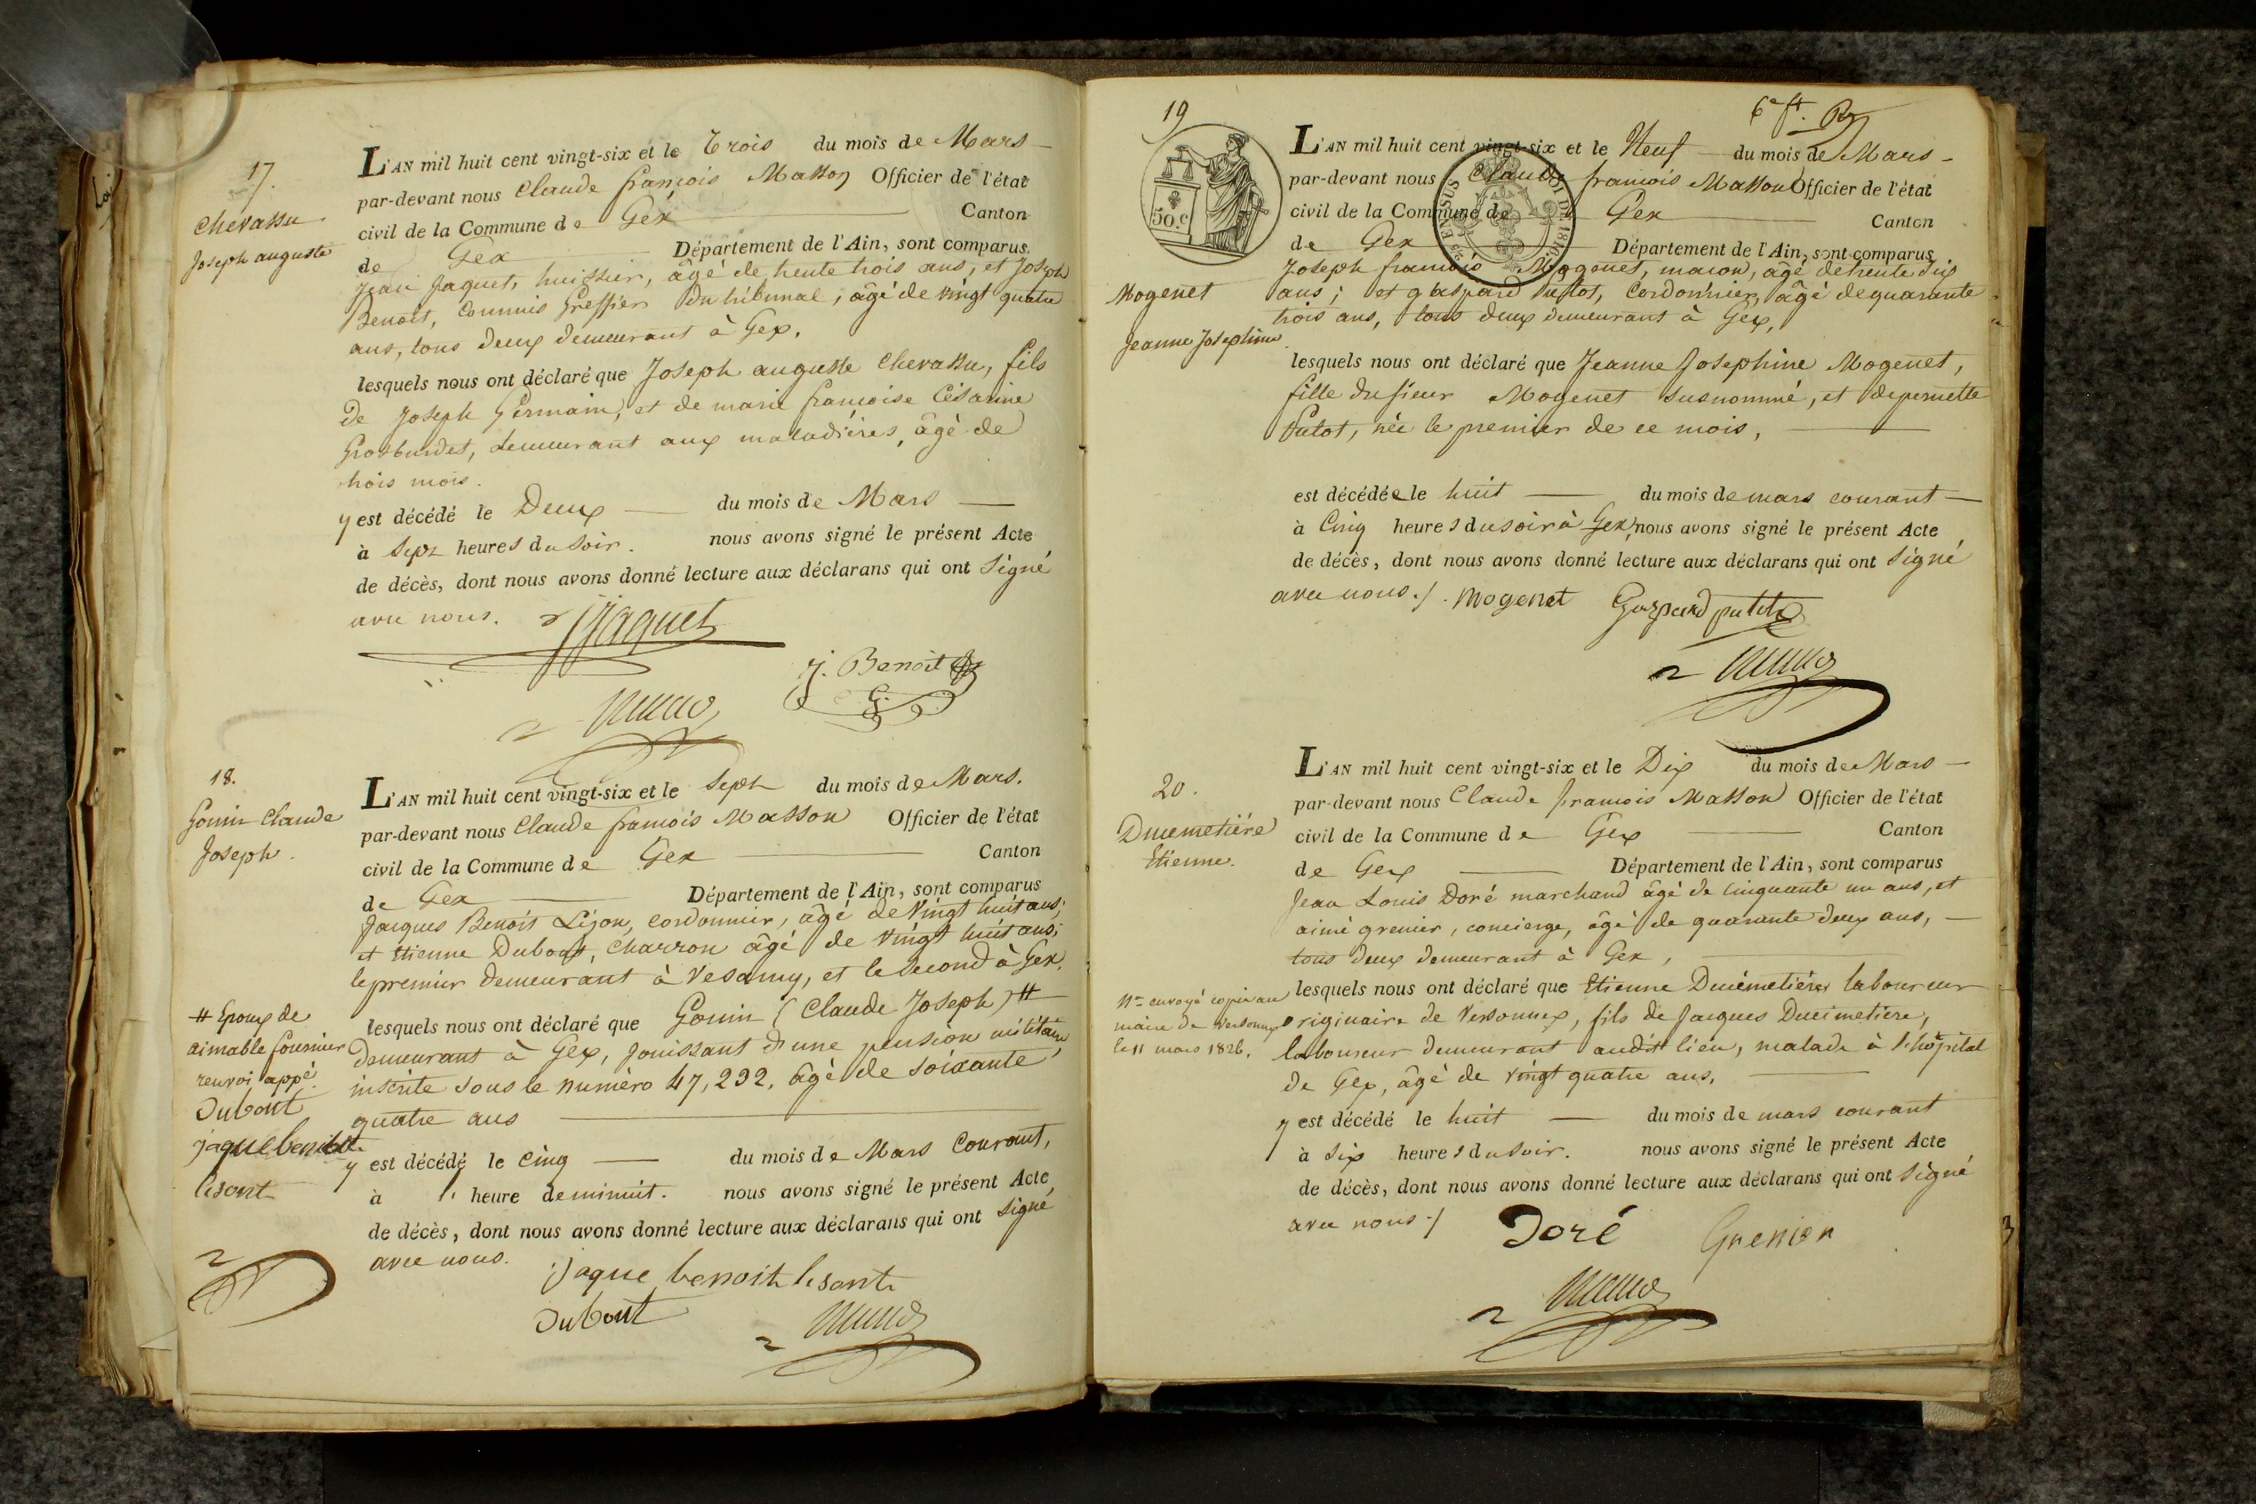 17.
Chevassu
Joseph auguste
L'AN mil huit cent vingt-six et le Trois du mois de Mars
par-devant nous Claude françois Masson Officier de l'état
civil de la Commune de Gex Canton
de Gex Département de l'Ain, sont comparus
Jean Jaquet, huissier, âgé de trente trois ans, et Joseph
Benoit, Commis Greffier du tribunal, âgé de vingt quatre
ans, tous deux demeurant à Gex,
lesquels nous ont déclaré que Joseph auguste Chevassu, fils
de Joseph Germain, et de marie françoise Césarine
Grosburdet, demeurant aux maladières, âgé de
trois mois.
y est décédé le Deux du mois de Mars
à Sept heures du soir. nous avons signé le présent Acte
de décès, dont nous avons donné lecture aux déclarans qui ont signé
avec nous. Jaquet
J. Benoit
18.
Gonin Claude
Joseph.
L'AN mil huit cent vingt-six et le Sept du mois de Mars.
par-devant nous Claude françois Masson Officier de l'état
civil de la Commune de Gex Canton
de Gex Département de l'Ain, sont comparus
Jacques Benoit Lizon, cordonnier, âgé de Vingt huit ans;
et Etienne Dubout, charron âgé de vingt huit ans;
le premier demeurant à Vesancy, et le second à Gex,
lesquels nous ont déclaré que Gonin (Claude Joseph) #
demeurant à Gex, jouissant d'une pension militaire,
inscrite sous le numéro 47,292, âgé de soixante
quatre ans
# Epoux de
aimable fournier
renvoi appé.
Dubout
jaque benoit
lisont
y est décédé le Cinq du mois de Mars Courant,
à heure de minuit. nous avons signé le présent Acte
de décès, dont nous avons donné lecture aux déclarans qui ont signé
avec nous. jaque benoit lisont
Dubout
6e ft.
19
50.c
23 EN SUS LOI DE 1816
Mogenet
Jeanne Josephine
L'AN mil huit cent vingt-six et le Neuf du mois de Mars
par-devant nous Claude francois Masson Officier de l'état
civil de la Commune de Gex Canton
de Gex Département de l'Ain, sont comparus
Joseph francois Mogenet, macon, âgé de trente six
ans; et gaspard Putot, Cordonnier, âgé de quarante
trois ans, tous deux demeurant à Gex,
lesquels nous ont déclaré que Jeanne Josephine Mogenet,
fille du sieur Mogenet susnommé, et de pernette
Putot, née le premier de ce mois,
est décédée le huit du mois de mars courant
à Cinq heures du soir à Gex, nous avons signé le présent Acte
de décès, dont nous avons donné lecture aux déclarans qui ont signé
avec nous./. Mogenet Gaspard putot
20.
Ducimetière
Etienne.
L'AN mil huit cent vingt-six et le Dix du mois de Mars
par-devant nous Claude francois Masson Officier de l'état
civil de la Commune de Gex Canton
de Gex Département de l'Ain, sont comparus
Jean Louis Doré marchand âgé de cinquante un ans, et
aimé grenier, concierge, âgé de quarante deux ans,
tous deux demeurant à Gex,
envoyé copie au
maire de Versonnex
le 11 mars 1826.
lesquels nous ont déclaré que Etienne Ducimetière laboureur
originaire de Versonnex, fils de Jacques Ducimetiere,
laboureur demeurant audit lieu, malade à l'hôpital
de Gex, âgé de vingt quatre ans,
y est décédé le huit du mois de mars courant
à six heures du soir. nous avons signé le présent Acte
de décès, dont nous avons donné lecture aux déclarans qui ont signé
avec nous ./ Doré Grenier